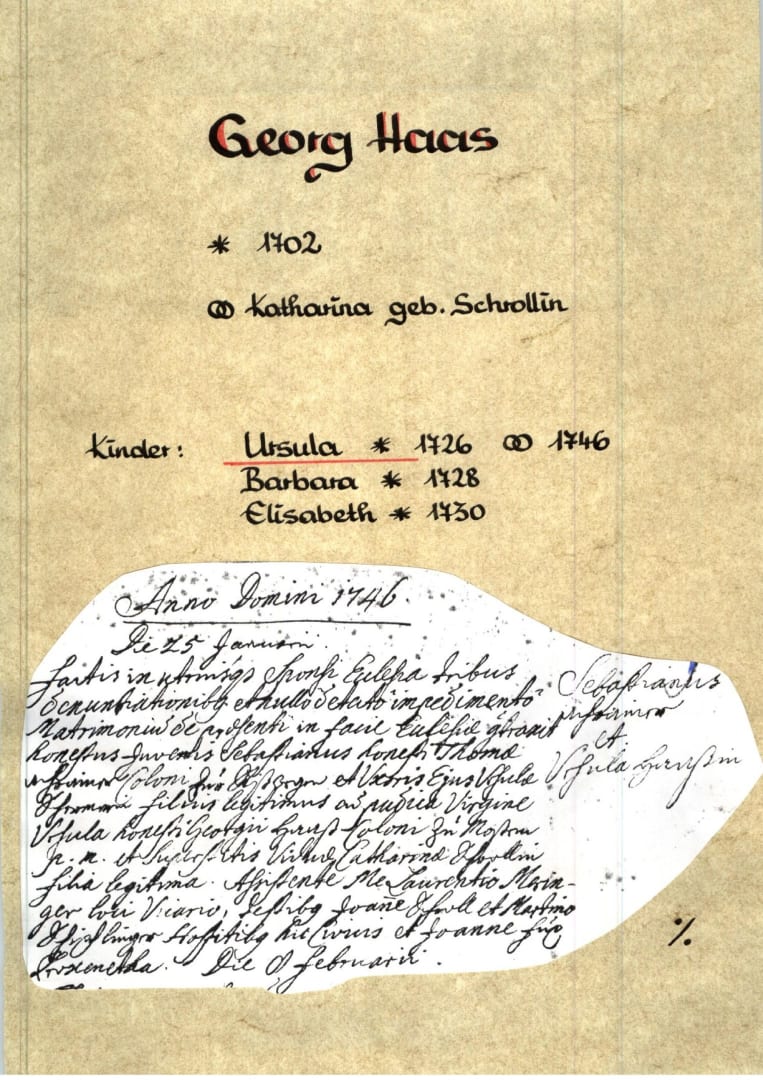 Georg Haas
* 1702
⚭ Katharina geb. Schrollin
Kinder: Ursula * 1726 ⚭ 1746
Barbara * 1728
Elisabeth * 1730
Anno Domini 1746
Die 25 Januarii
factis in utriusqs sponsi Ecclesia tribus
denuntiationibq et nullo detecto impedimento
Matrimoniu de presenti in facie Ecclesiæ
honestus Juvenis Sebastianus honesti Thomæ
Coloni et Uxoris Ejus Vhsula
filius legitimus cu pudica Virgine
Vhsula honesti Georgii Coloni Zu
p. m. et Superstitis Viduæ Catharinæ Schrollin
filia legitima. Assistente Me Laurentio Merin-
ger loci Vicario, Testibq Joane Schroll et Martino
et Joanne
Die Februarii.
Sebastianus
Et
Vhsula
%